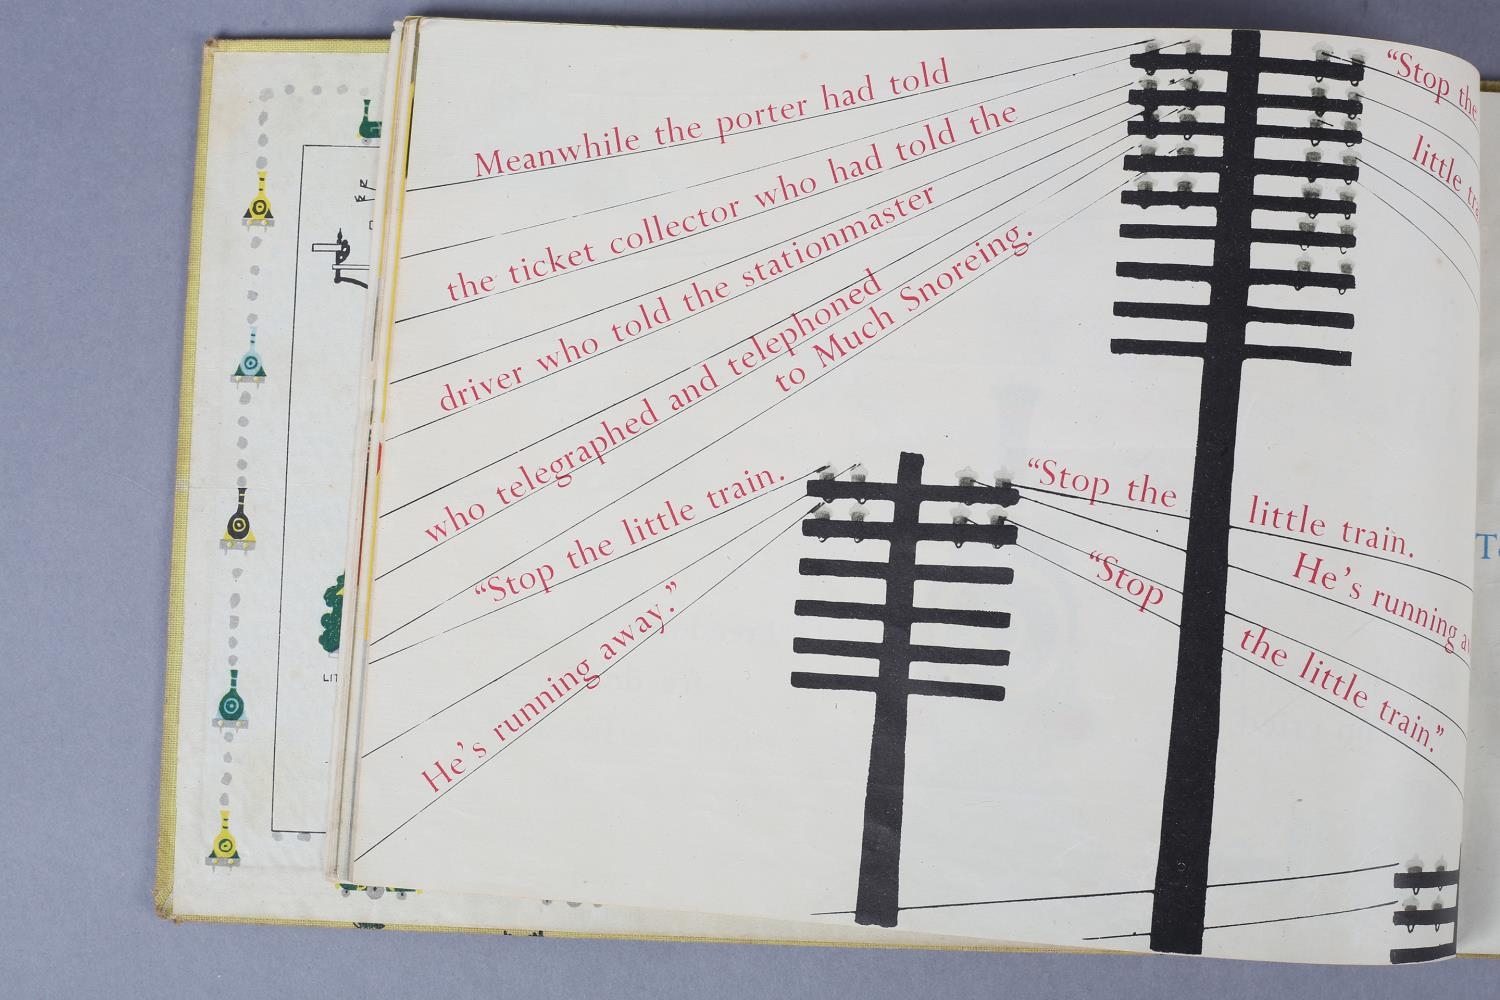 Meanwhile the porter had told
the ticket collector who had told the
driver who told the stationmaster
who telegraphed and telephoned
to Much Snoreing.
"Stop the little train.
He's running away."
"Stop the little train.
He's running
"Stop the little train."
"Stop the
little